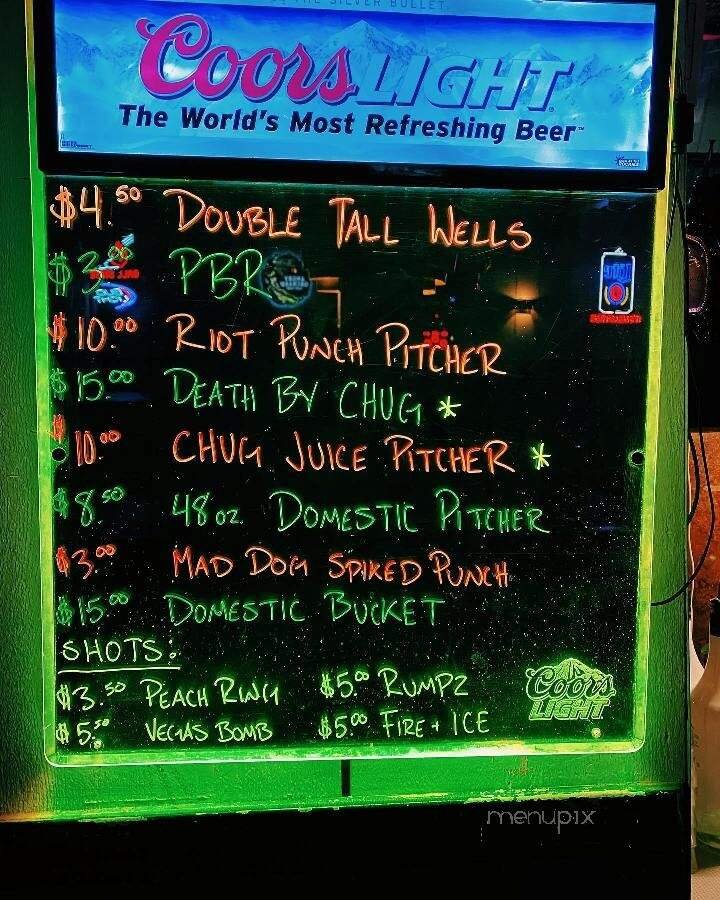 THE SILVER BULLET
Coors LIGHT
The World's Most Refreshing Beer™
$4.50 DOUBLE TALL WELLS
$3.00 PBR
$10.00 RIOT PUNCH PITCHER
$15.00 DEATH BY CHUG *
$10.00 CHUG JUICE PITCHER *
$8.50 48 oz. DOMESTIC PITCHER
$3.00 MAD DOG SPIKED PUNCH
$15.00 DOMESTIC BUCKET
SHOTS:
$3.50 PEACH RING $5.00 RUMPZ
$5.50 VEGAS BOMB $5.00 FIRE + ICE
Coors
LIGHT
menupix